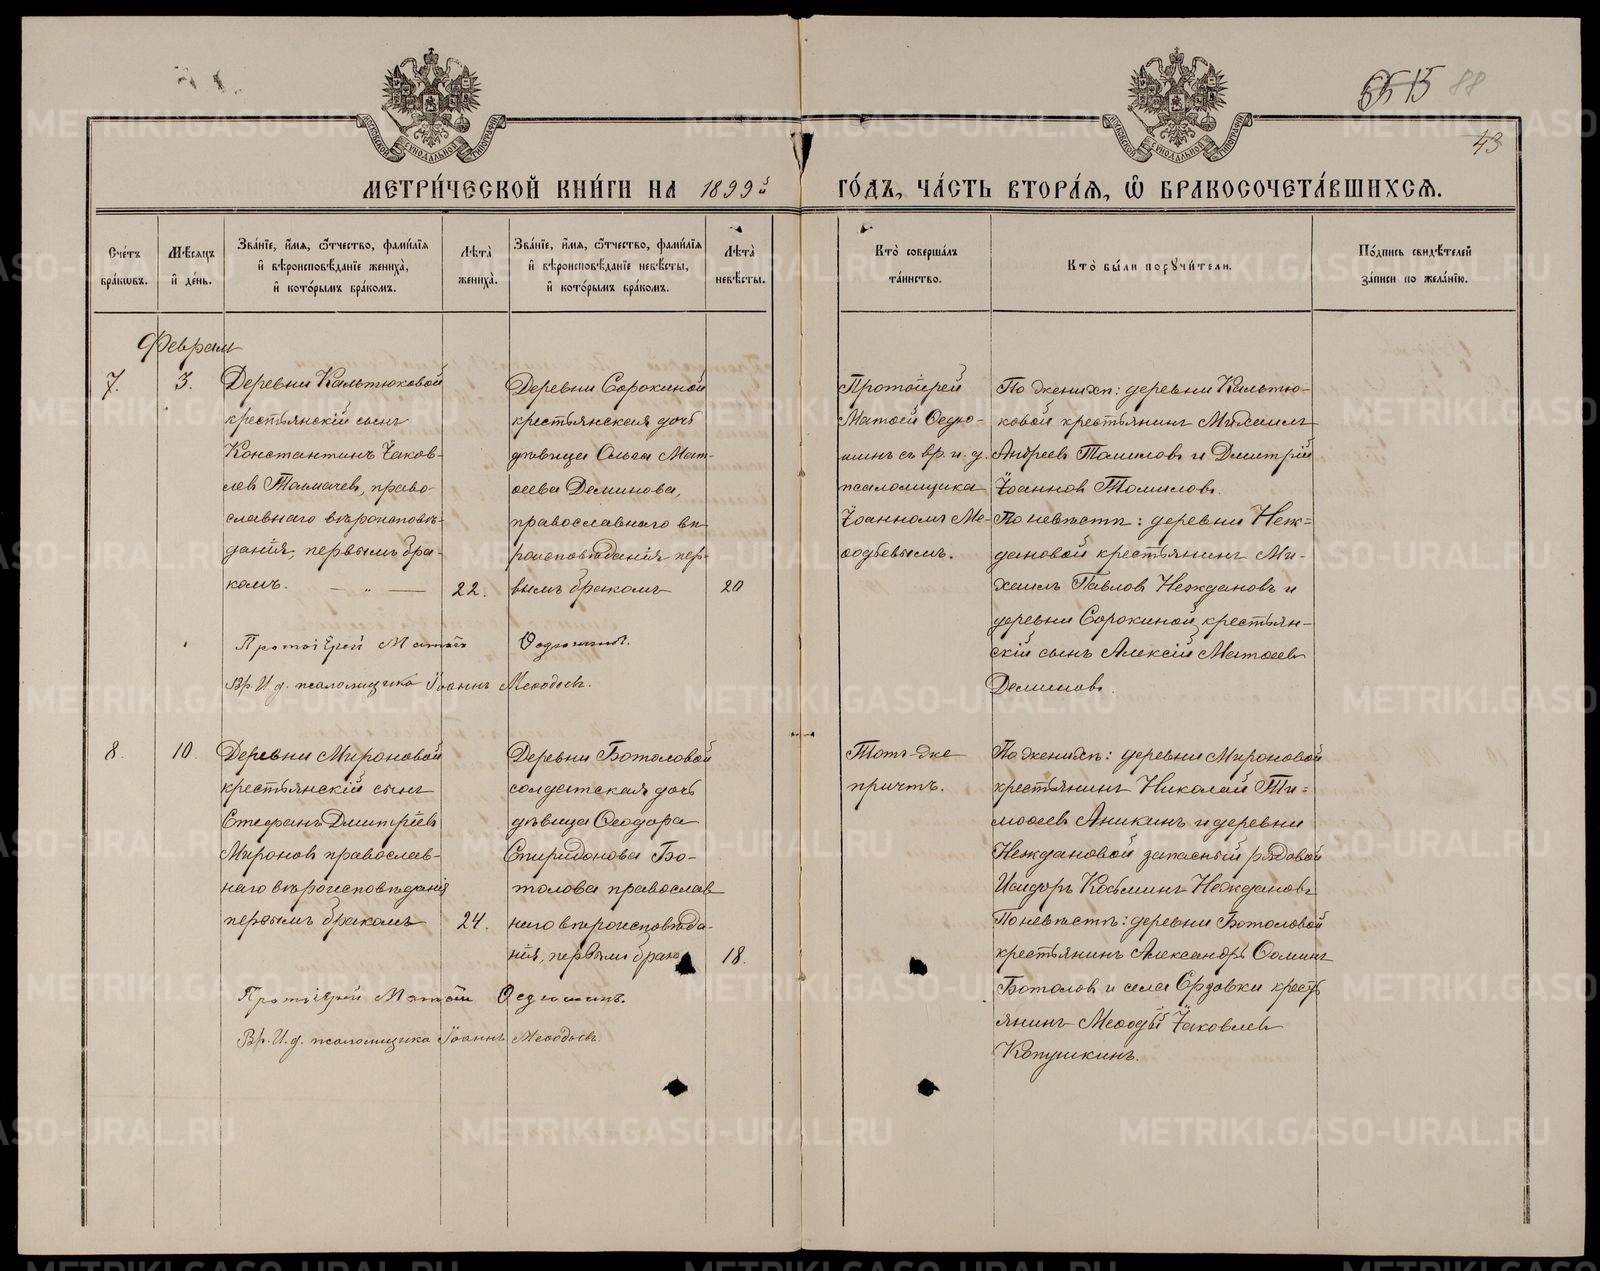 55 15 88
43
МЕТРИЧЕСКОЙ КНИГИ НА 1899й ГОДЪ, ЧАСТЬ ВТОРАЯ, Ѿ БРАКОСОЧЕТАВШИХСЯ.
Счетъ браковъ.
Мѣсяцъ и день.
Званіе, имя, отчество, фамилія и вѣроисповѣданіе жениха, и которымъ бракомъ.
Лѣта жениха.
Званіе, имя, отчество, фамилія и вѣроисповѣданіе невѣсты, и которымъ бракомъ.
Лѣта невѣсты.
Кто совершалъ таинство.
Кто были поручители.
Подпись свидѣтелей записи по желанію.
Февраль
7. 3.
Деревни Кальтюковой
крестьянскій сынъ
Константинъ Іаков-
левъ Толмачевъ, право-
славнаго вѣроисповѣ-
данія, первымъ бра-
комъ. — „ — 22.
Деревни Сорокиной
крестьянская дочь
дѣвица Ольга Мат-
ѳеева Деминова,
православнаго вѣ-
роисповѣданія пер-
вымъ бракомъ 20
Протоіерей
Матѳей Ѳедю-
шинъ съ вр. и. д.
псаломщика
Іоанномъ Ме-
ѳодьевымъ.
По женихѣ: деревни Кальтю-
ковой крестьянинъ Михаилъ
Андреевъ Томиловъ и Дмитрій
Іоанновъ Томиловъ.
По невѣстѣ: деревни Неж-
дановой крестьянинъ Ми-
хаилъ Павловъ Неждановъ и
деревни Сорокиной крестьян-
скій сынъ Алексій Матѳеевъ
Деминовъ.
Протоіерей Матѳей Ѳедюшинъ.
Вр. И. д. псаломщика Іоаннъ Меѳодьевъ.
8. 10.
Деревни Мироновой
крестьянскій сынъ
Стефанъ Дмитріевъ
Мироновъ православ-
наго вѣроисповѣданія
первымъ бракомъ 24.
Деревни Ботоловой
солдатская дочь
дѣвица Ѳеодора
Спиридонова Бо-
толова православ
наго вѣроисповѣда-
нія, первымъ брако 18.
Тотъ-же
причтъ.
По женихѣ: деревни Мироновой
крестьянинъ Николай Ти-
моѳеевъ Аникинъ и деревни
Неждановой запасный рядовой
Исидоръ Козьминъ Неждановъ
По невѣстѣ: деревни Ботоловой
крестьянинъ Александръ Ѳоминъ
Ботоловъ и села Ярзовки кресть
янинъ Меѳодій Іаковлевъ
Копушкинъ.
Протоіерей Матѳей Ѳедюшинъ.
Вр. И. д. псаломщика Іоаннъ Меѳодьевъ.
METRIKI.GASO-URAL.RU